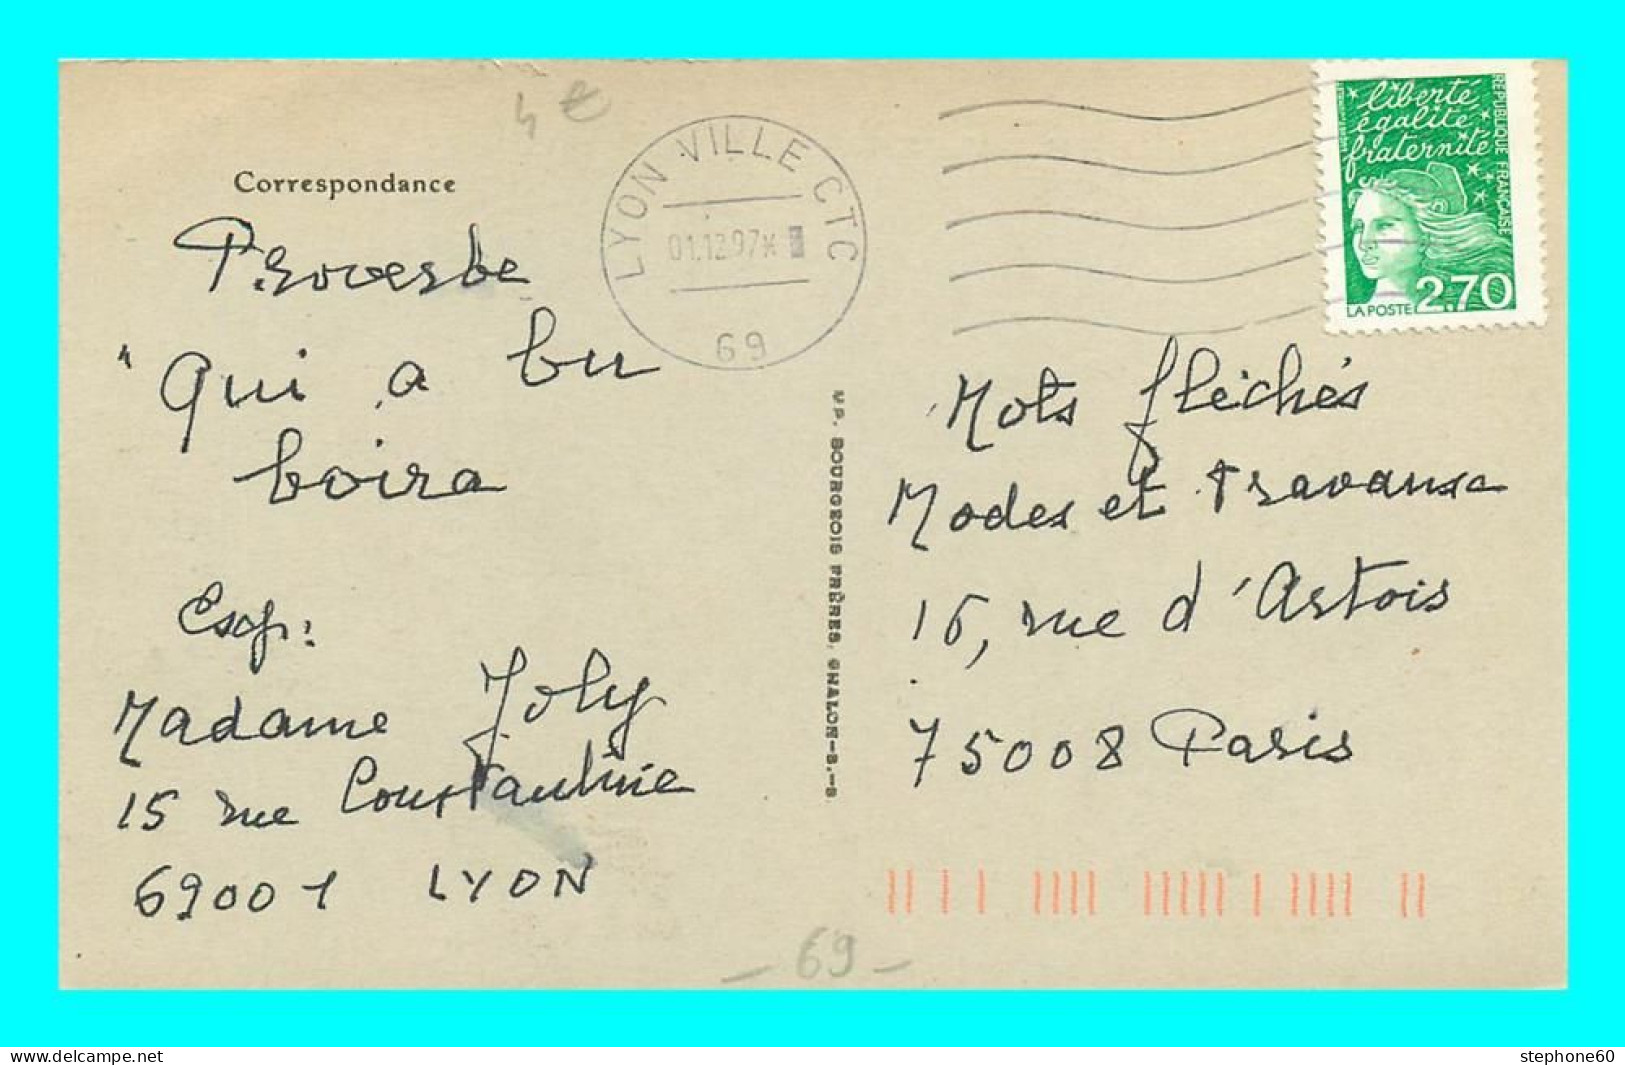 4 €
Correspondance
Proverbe
"Qui a bu
boira
Exp:
Madame Joly
15 rue Constantine
69001 LYON
LYON VILLE CTC
01.12.97*
69
liberté
égalité
fraternité
RÉPUBLIQUE FRANÇAISE
LA POSTE 2,70
VP. BOURGEOIS FRÈRES, CHALON-S.-S.
Mots fléchés
Modes et travaux
16, rue d'Artois
75008 Paris
- 69 -
www.delcampe.net
stephone60